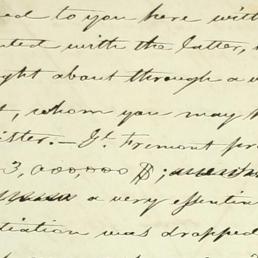 ed to you here with
nted with the latter,
ght about through a
t, whom you may
itter. — Jf Fremont pr
3,000,000 $;
a very essentia
tiation was dropped